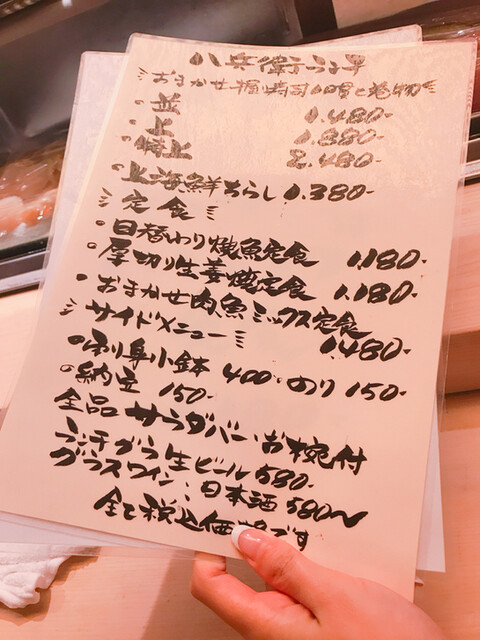 八兵衛ランチ
おまかせ握寿司10貫と巻物
・並 1.480-
・上 1.880-
・特上 2.480-
・上海鮮ちらし 1.380-
定食
・日替わり焼魚定食 1.180-
・厚切り生姜焼定食 1.180-
・おまかせ肉魚ミックス定食 1.480-
サイドメニュー
・刺身小鉢 400- のり 150-
・納豆 150-
全品 サラダバー・お椀付
ランチから生ビール 580-
グラスワイン、日本酒 580~
全て税込価格です